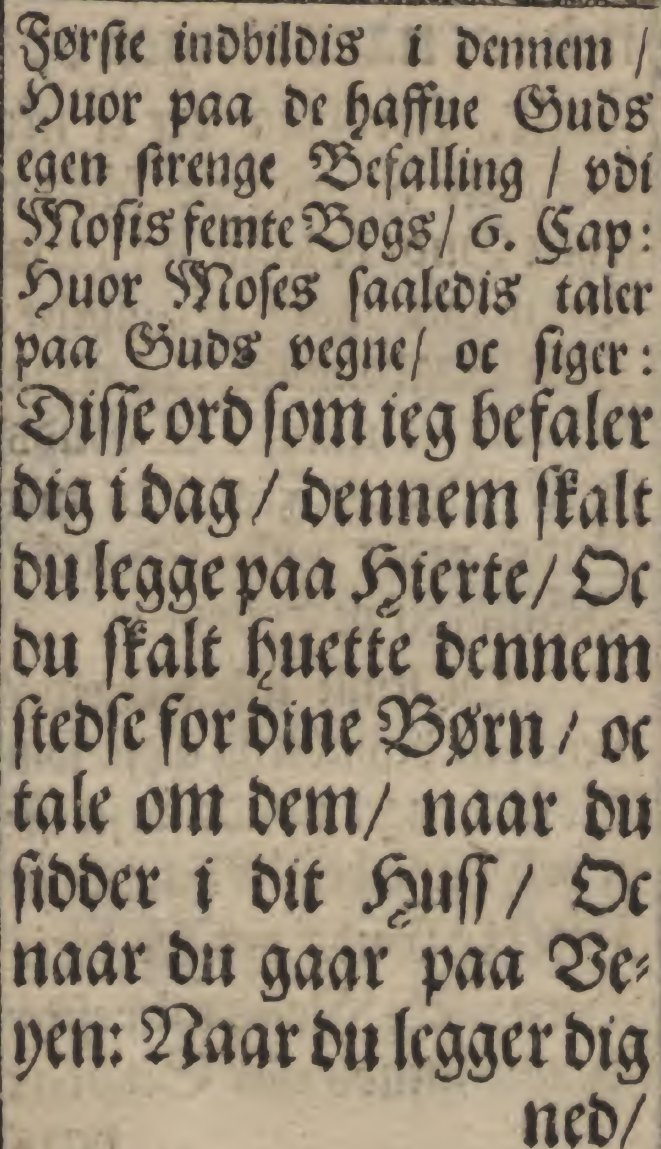 Første indbildis i dennem /
Huor paa de haffue Guds
egen strenge Befalling / vdi
Mosis femte Bogs / 6. Cap:
Huor Moses saaledis taler
paa Guds vegne / oc siger:
Disse ord som ieg befaler
dig i dag / dennem skalt
du legge paa Hierte / Oc
du skalt huette dennem
stedse for dine Børn / oc
tale om dem / naar du
sidder i dit Huss / Oc
naar du gaar paa Ve-
yen: Naar du legger dig
ned /